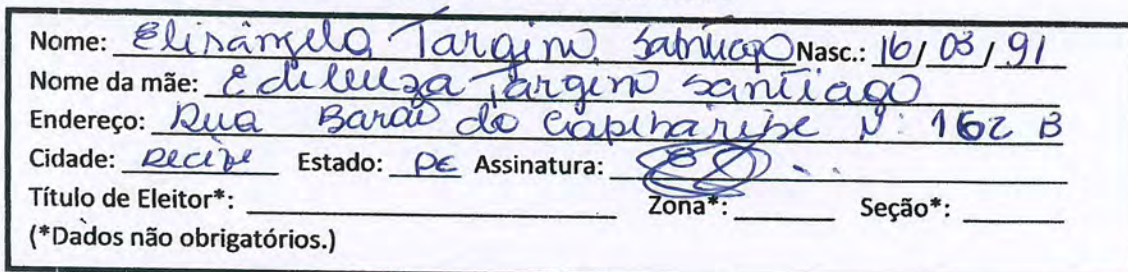 Nome: Elisângela Targino Santiago Nasc.: 16/03/91
Nome da mãe: Edileuza Targino Santiago
Endereço: Rua Barão do Capibaribe N: 162 B
Cidade: Recife Estado: PE Assinatura:
Título de Eleitor*: Zona*: Seção*:
(*Dados não obrigatórios.)